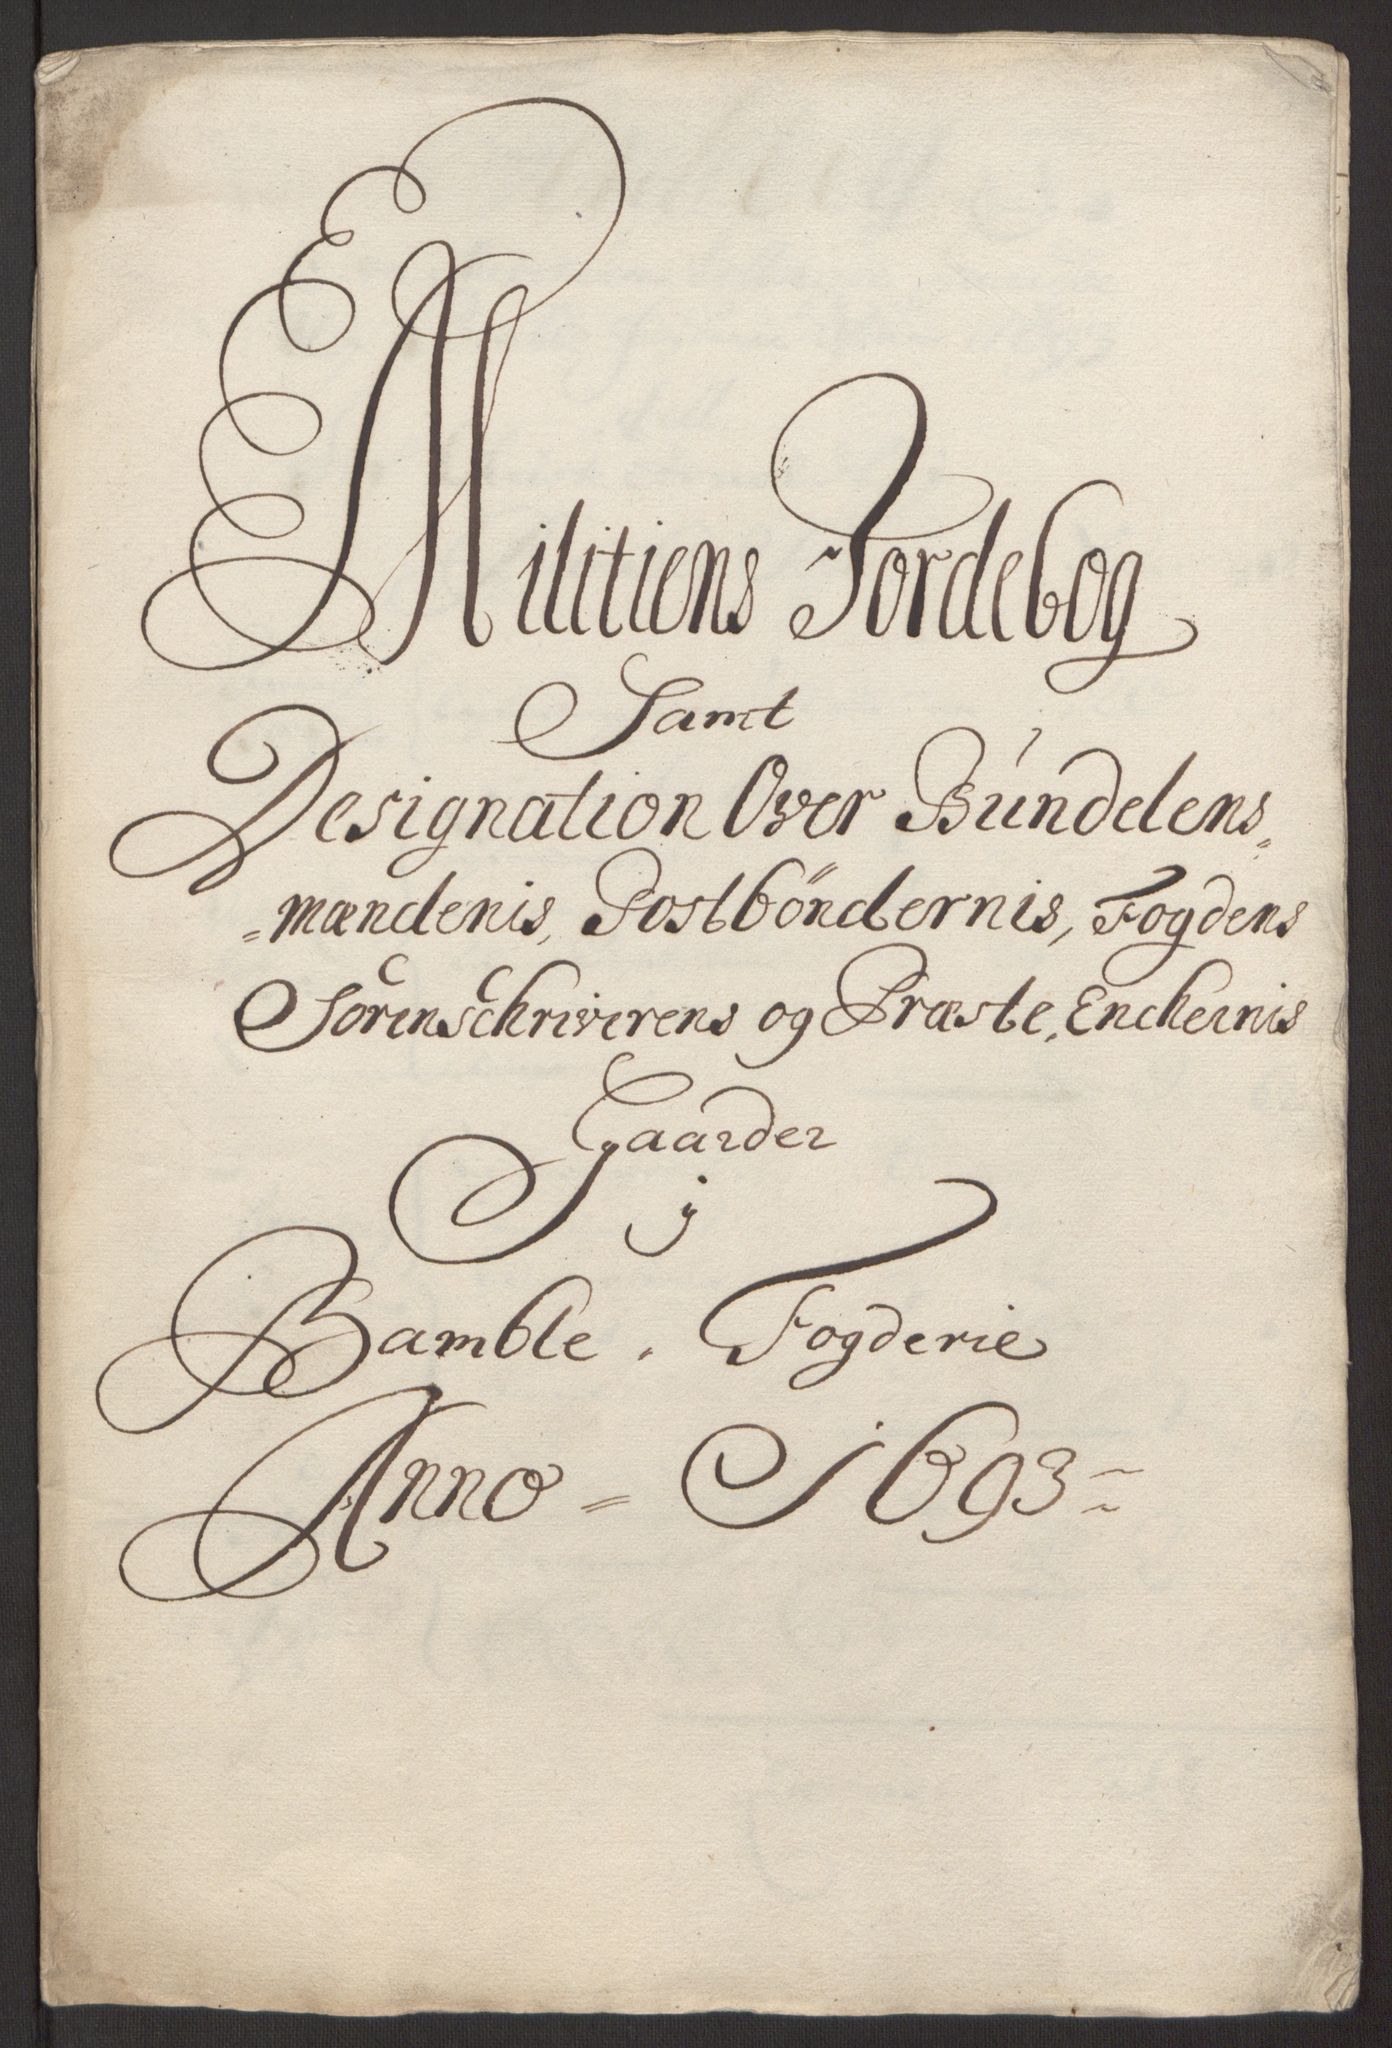 Militiens Jordebog
Samt
Designation Over Bundelens=
=mændenis, Postböndernis, Fogdens
Sorenschriverens og Præste, Enchernis
Gaarder
j
Bamble. Fogderie
Anno = 1693